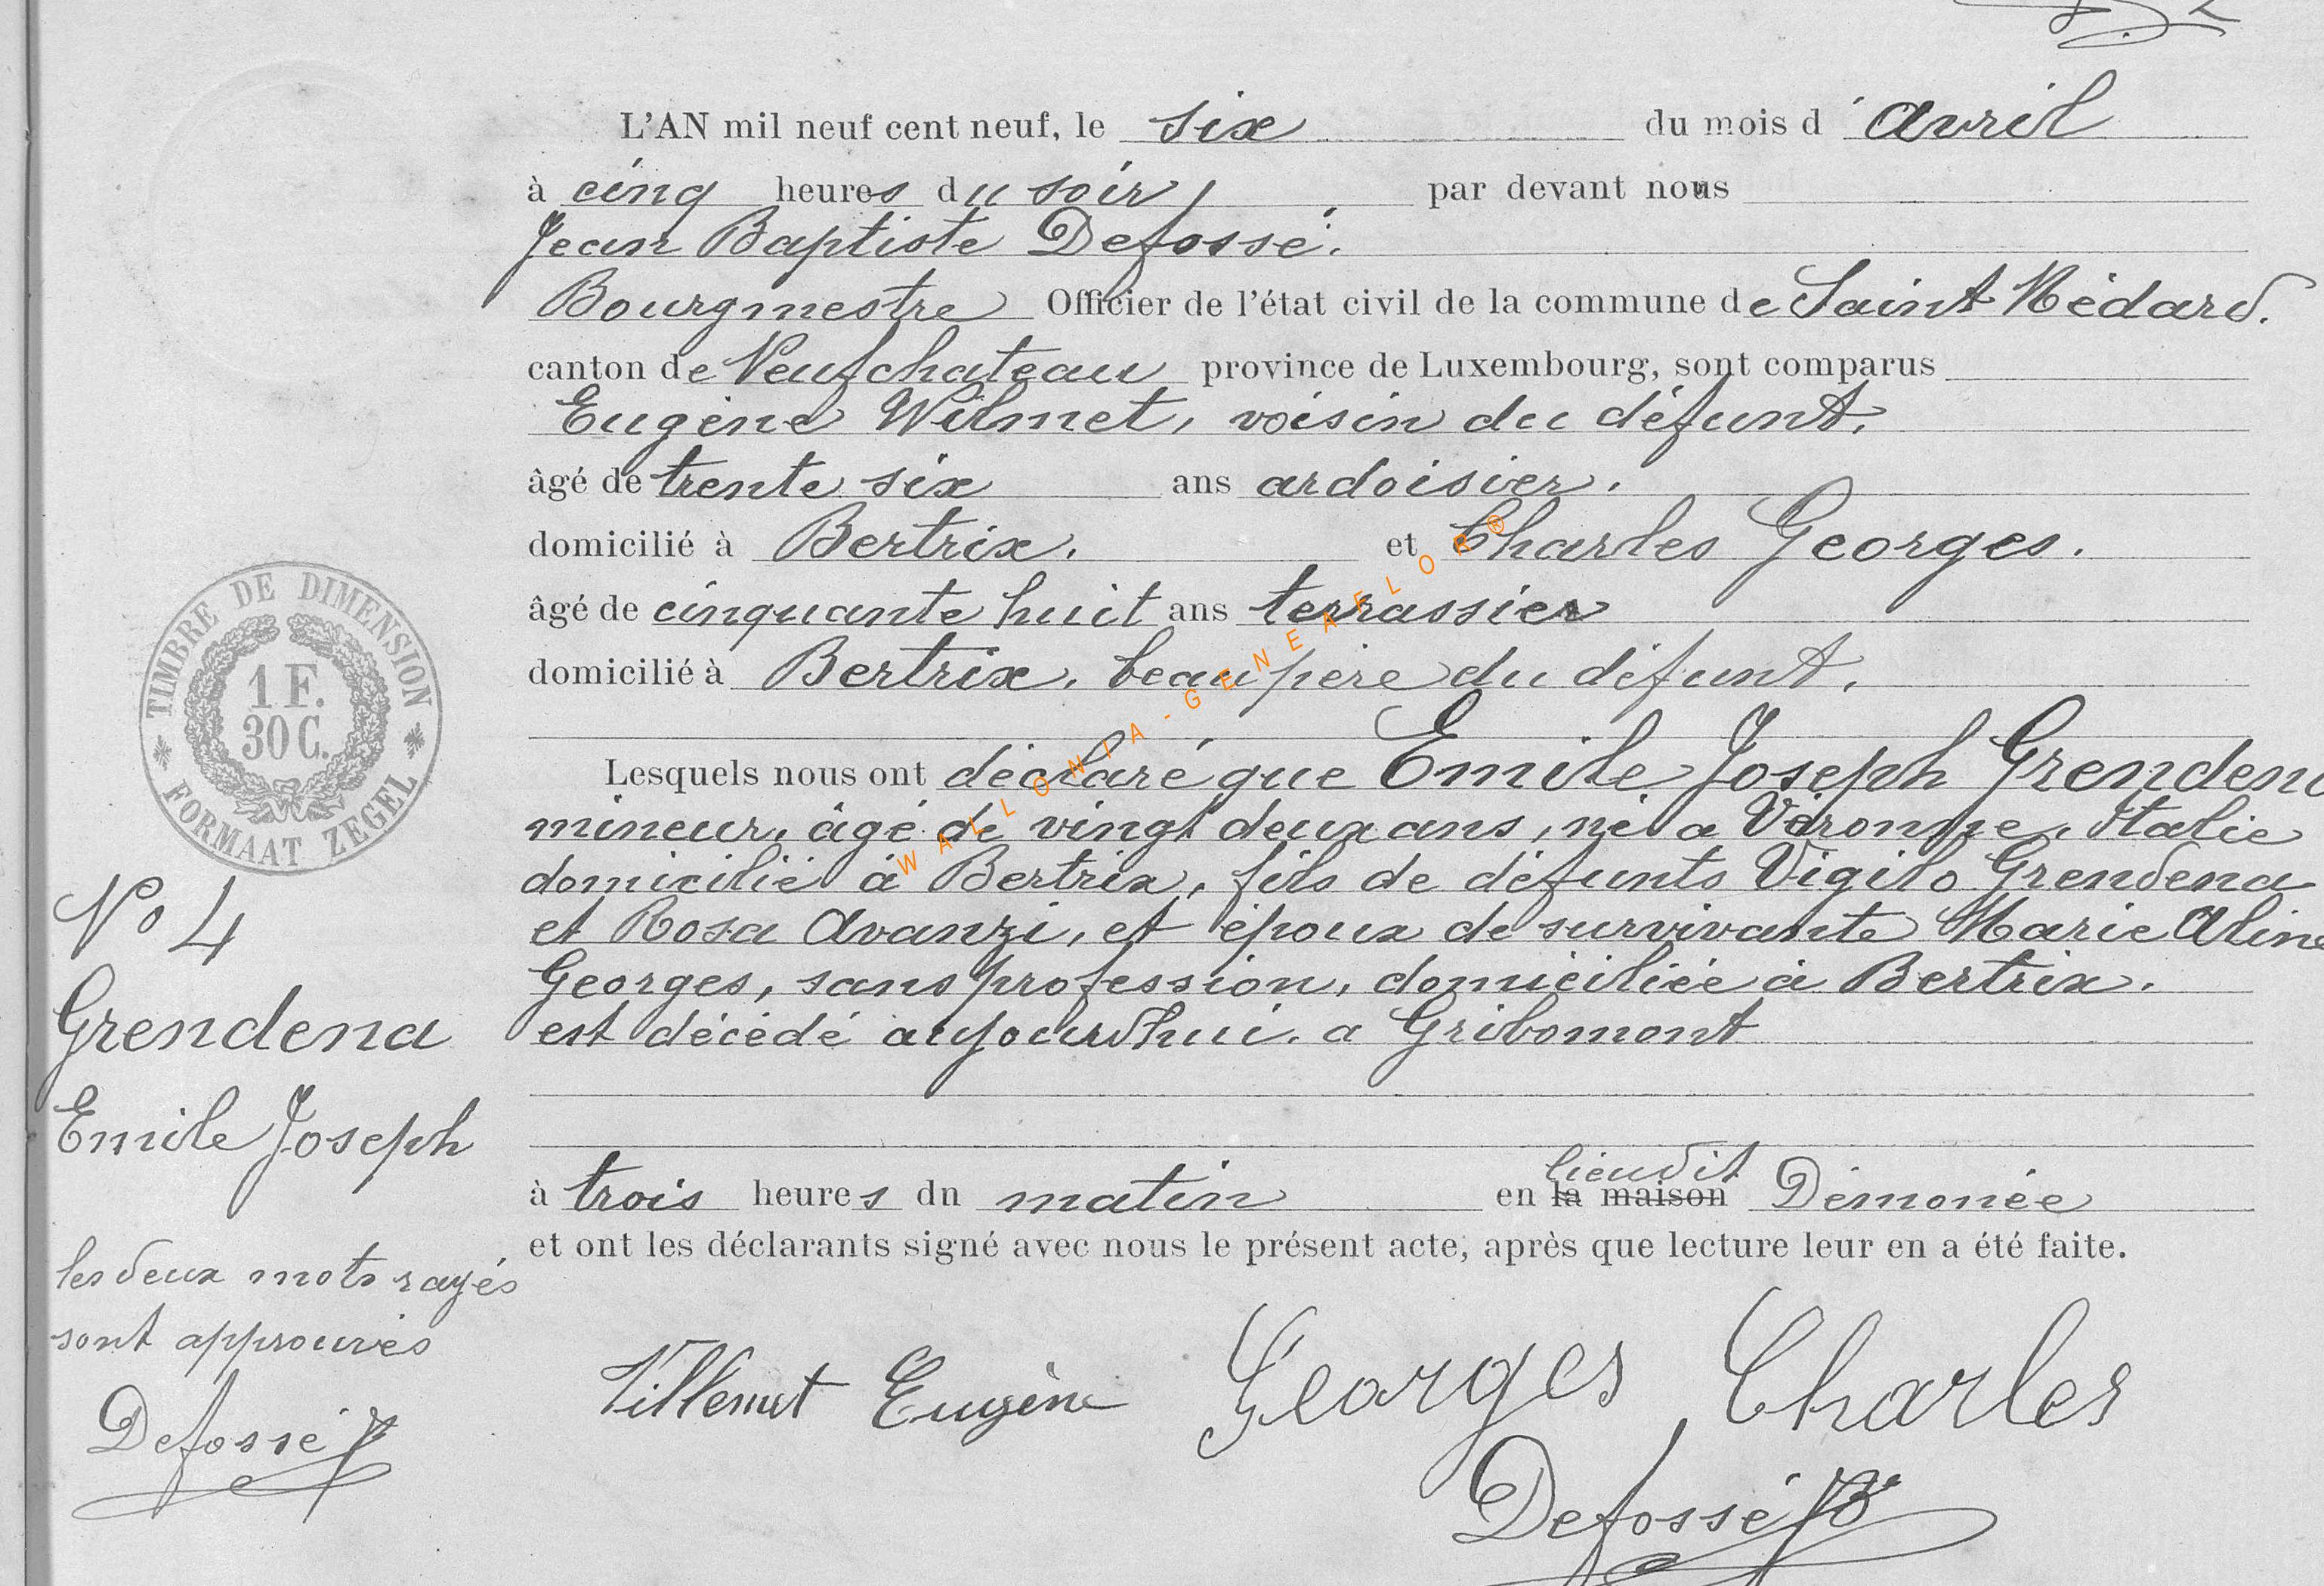 L'AN mil neuf cent neuf, le six du mois d'avril
à cinq heures du soir, par devant nous
Jean Baptiste Defossé.
Bourgmestre Officier de l'état civil de la commune de Saint Médard.
canton de Neufchateau province de Luxembourg, sont comparus
Eugène Wilmet, voisin du défunt,
âgé de trente six ans ardoisier.
domicilié à Bertrix. et Charles Georges.
âgé de cinquante huit ans terrassier
domicilié à Bertrix. beau père du défunt.
Lesquels nous ont déclaré que Emile Joseph Grendena
mineur, âgé de vingt deux ans, né a Véronne, Italie
domicilié à Bertrix, fils de défunts Vigilo Grendena
et Rosa Avanzi, et époux de survivante Marie Aline
Georges, sans profession, domiciliée à Bertrix.
est décédé aujourdhui. a Gribomont
lieu dit
à trois heures du matin en la maison Démonée
et ont les déclarants signé avec nous le présent acte, après que lecture leur en a été faite.
Villemet Eugène Georges Charles
Defossé JB
TIMBRE DE DIMENSION
1 F.
30 C.
FORMAAT ZEGEL
No 4
Grendena
Emile Joseph
les deux mots rayés
sont approuvés
Defossé
WALLONIA-GENEAFLOR®